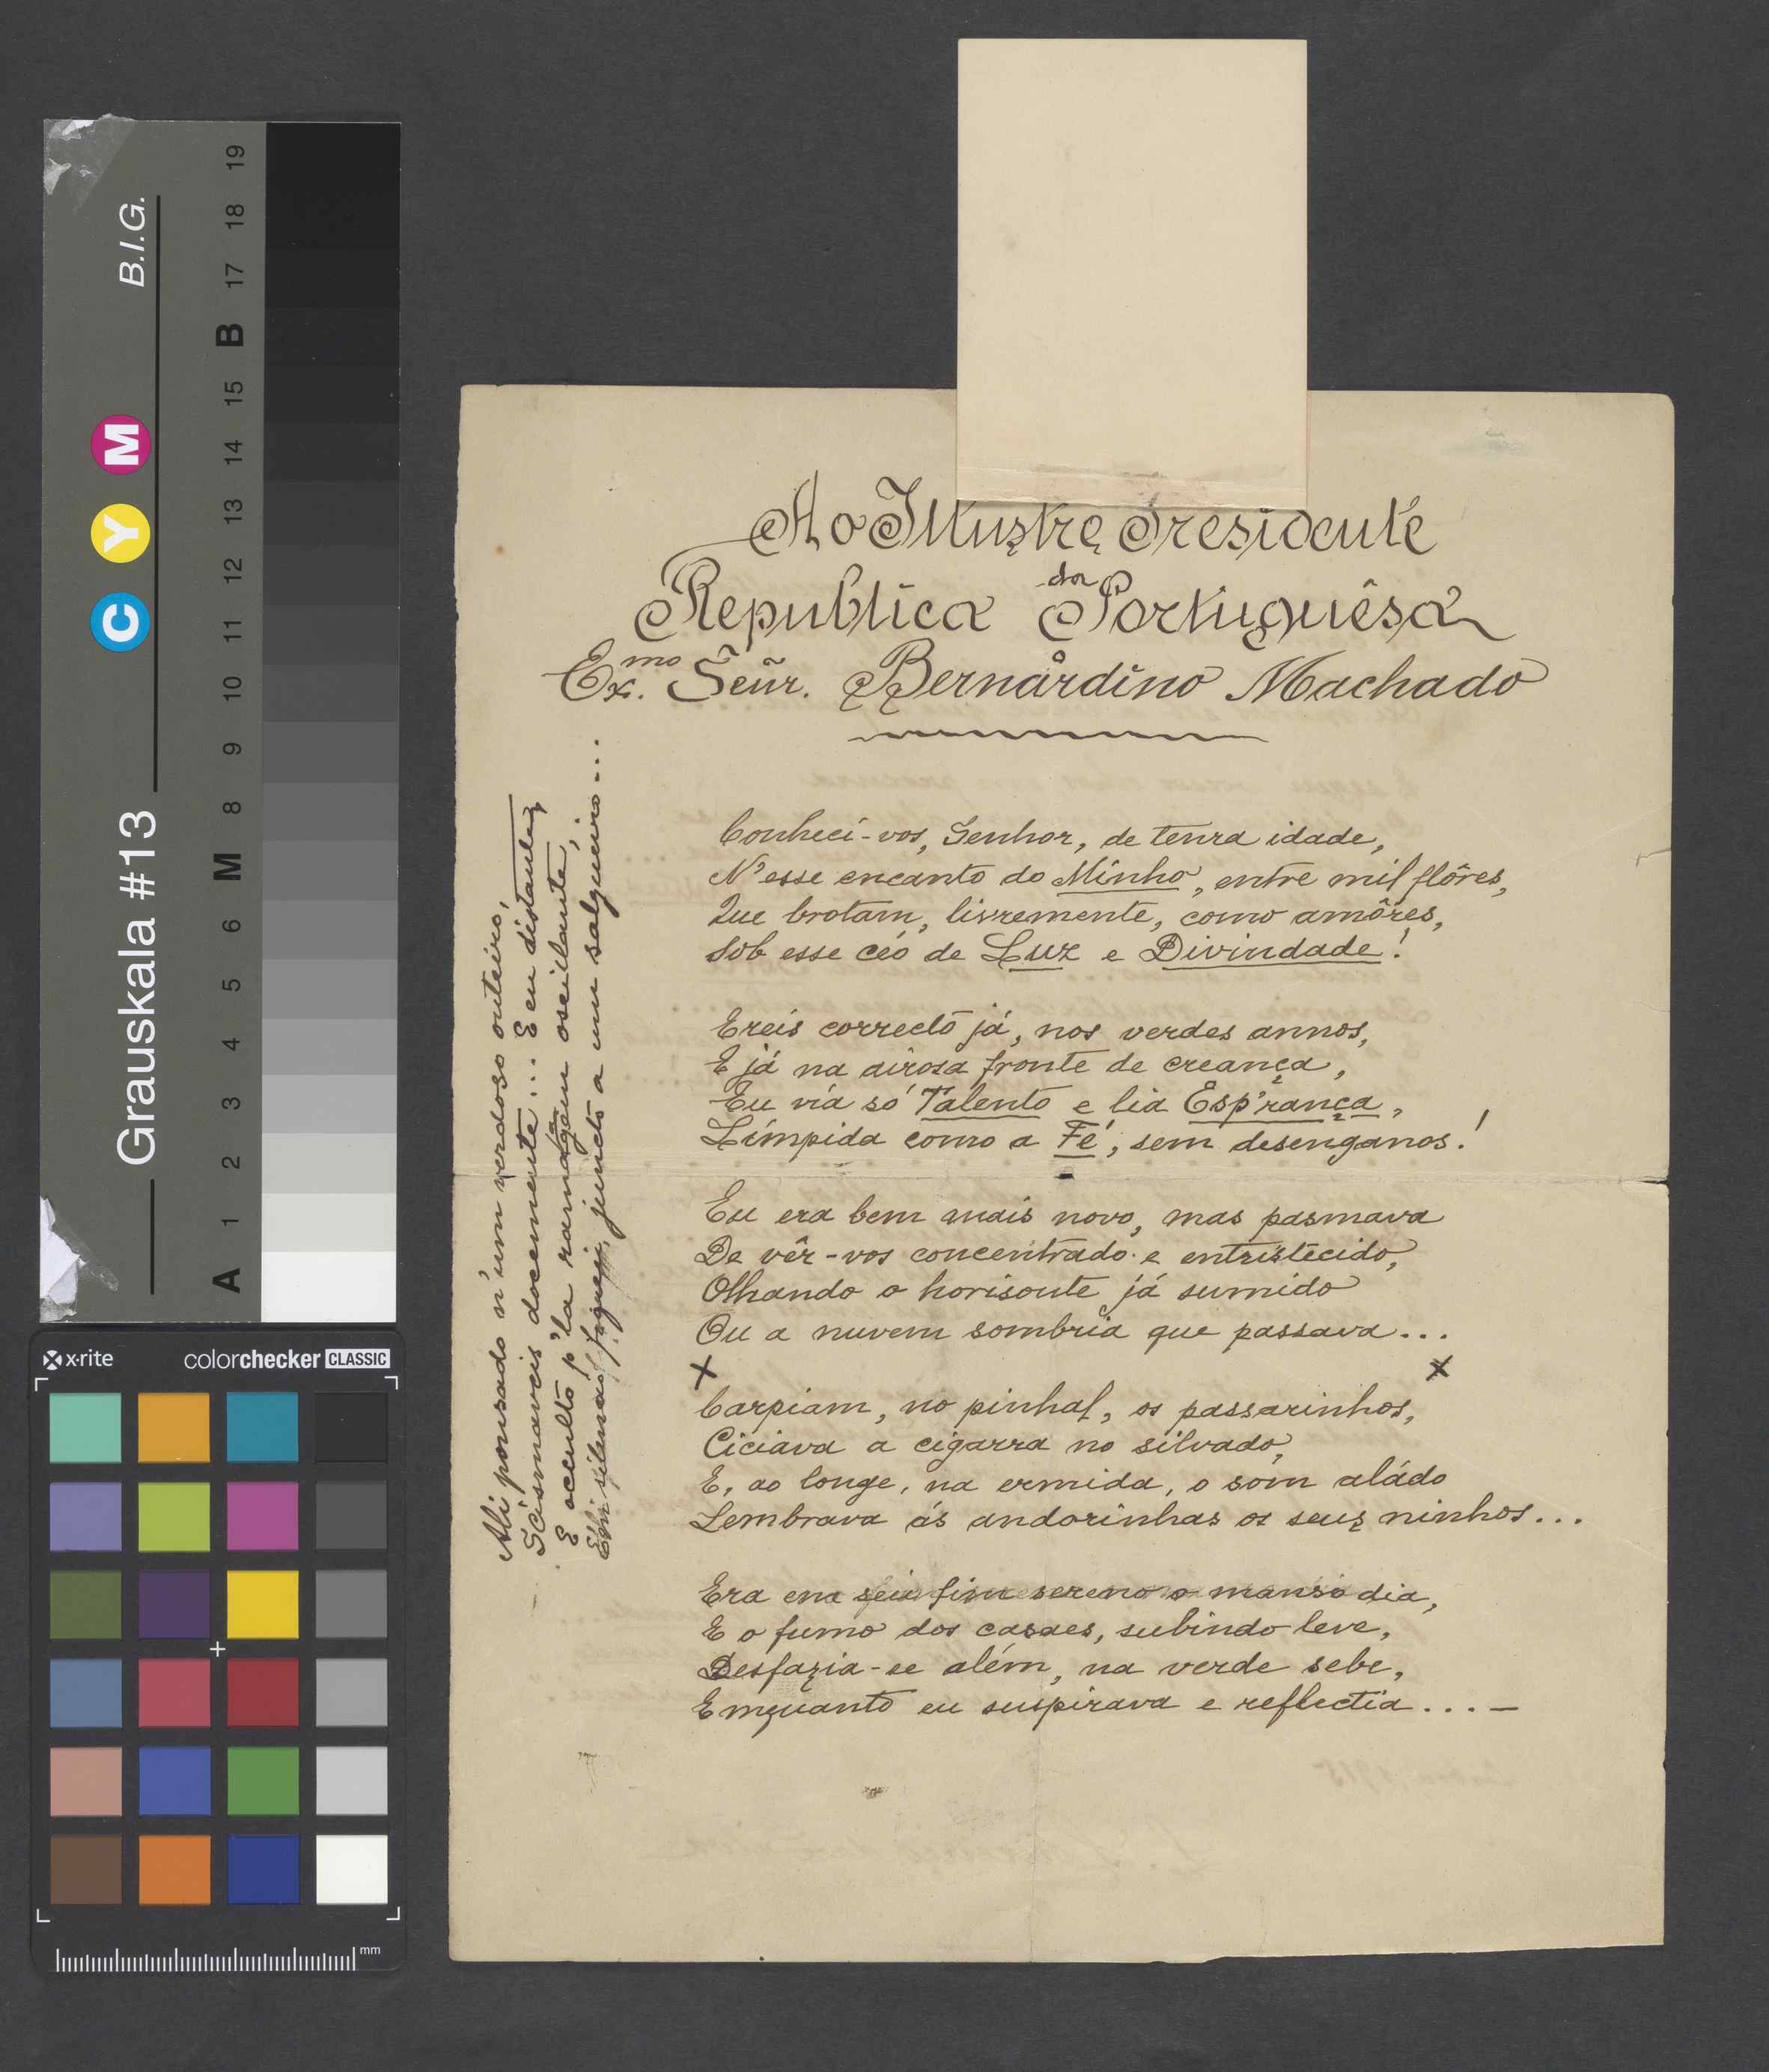 Ao Illustre Presidente
da
Republica Portuguêsa
Ex.mo Senr. Bernardino Machado
Conheci-vos, Senhor, de tenra idade,
N'esse encanto do Minho, entre mil flôres,
Que brotam, livremente, como amôres,
Sob esse céo de Luz e Divindade!
Ereis correcto já, nos verdes annos,
E já na airosa fronte de creança,
Eu via só Talento e lia Esp'rança,
Límpida como a Fé, sem desenganos!
Eu era bem mais novo, mas pasmava
De vêr-vos concentrado e entristecido,
Olhando o horisonte já sumido
Ou a nuvem sombria que passava...
x x
Carpiam, no pinhal, os passarinhos,
Ciciava a cigarra no silvado,
E, ao longe, na ermida, o som aládo
Lembrava ás andorinhas os seus ninhos...
Era em seu fim sereno o manso dia,
E o fumo dos casaes, subindo leve,
Desfazia-se além, na verde sebe,
Emquanto eu suspirava e reflectia...-
Ali pousado n'um verdoso outeiro,
Scismaveis docemente... E eu distante,
E occulto p'la ramagem oscillante,
fiquei, juncto a um salgueiro...
Grauskala #13
B.I.G.
C Y M
A 1 2 3 4 5 6 M 8 9 10 11 12 13 14 15 B 17 18 19
x-rite
colorchecker CLASSIC
mm